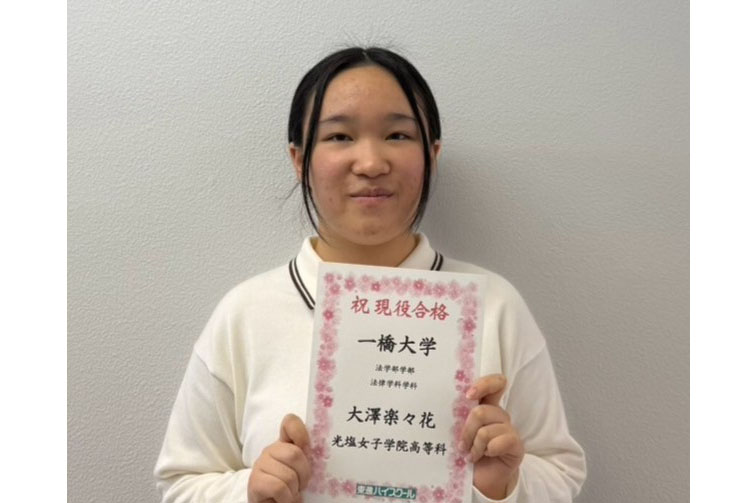 祝 現役合格
一橋大学
法学部学部
法律学科学科
大澤楽々花
光塩女子学院高等科
東進ハイスクール